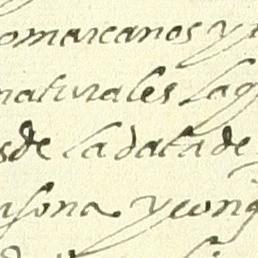 omarcanos y
naturales la
sde la data de
sona y cong